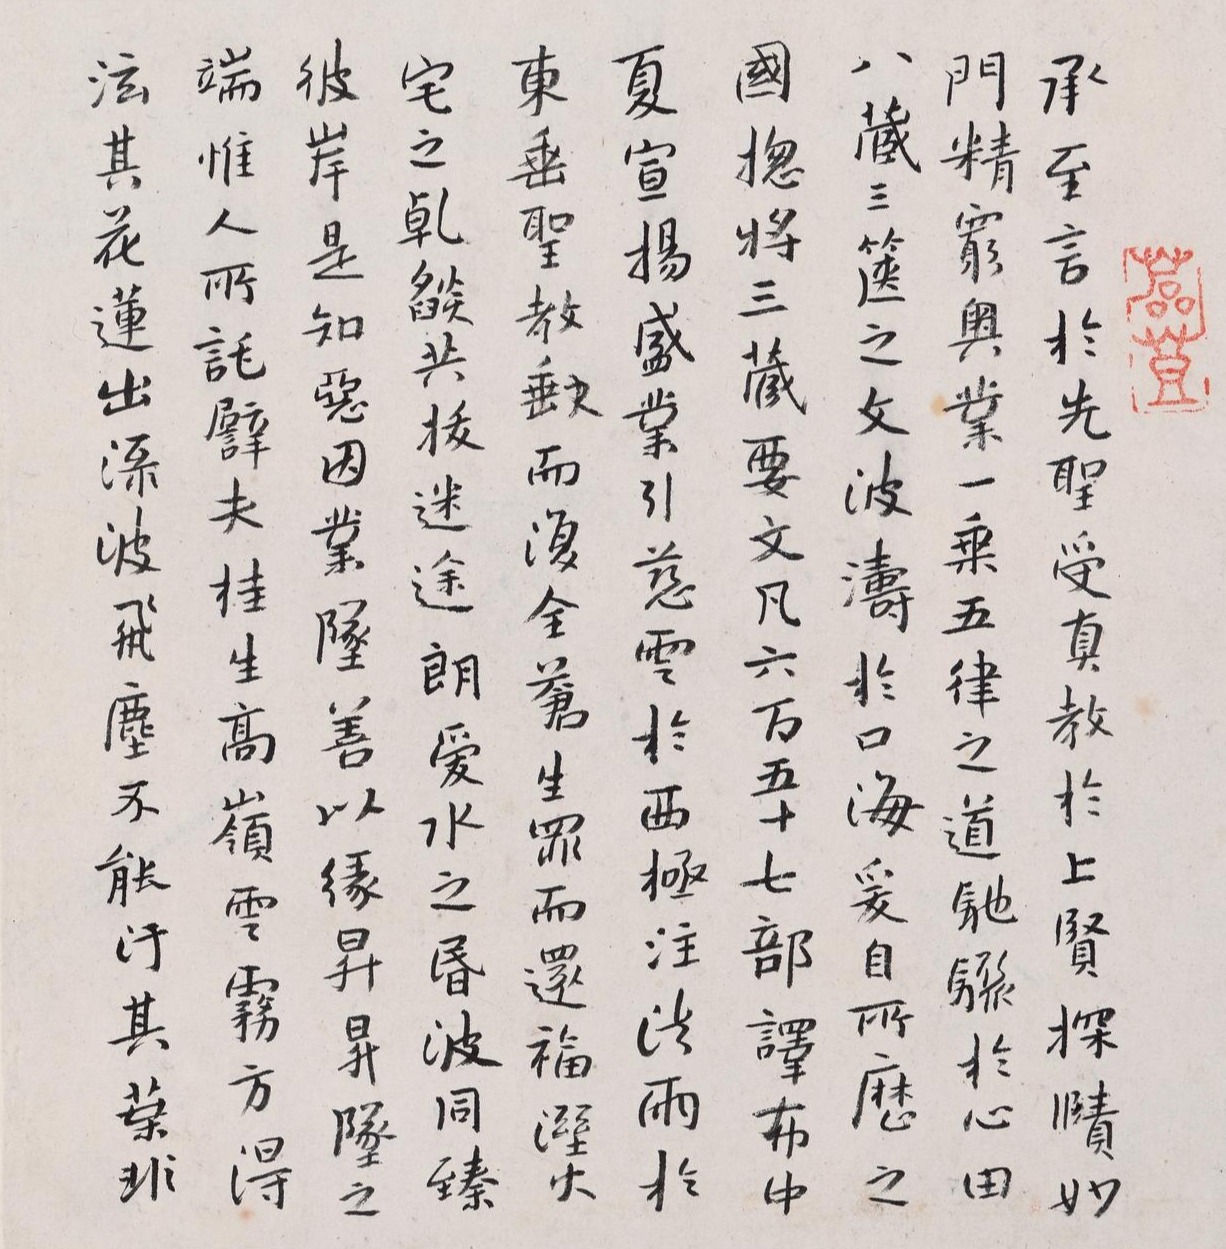 承至言於先聖受真教於上賢探賾妙
門精窮奥業一乗五律之道馳驟於心田
八蔵三篋之文波濤於口海爰自所歴之
國揔将三蔵要文凡六百五十七部譯布中
夏宣揚盛業引慈雲於西極注法雨於
東垂聖教軼而復全蒼生罪而還福溼火
宅之乹燄共拔迷途朗愛水之昏波同臻
彼岸是知惡因業墜善以縁昇昇墜之
端惟人所託譬夫桂生髙嶺雲霧方得
泫其花蓮出淥波飛塵不能汙其葉非